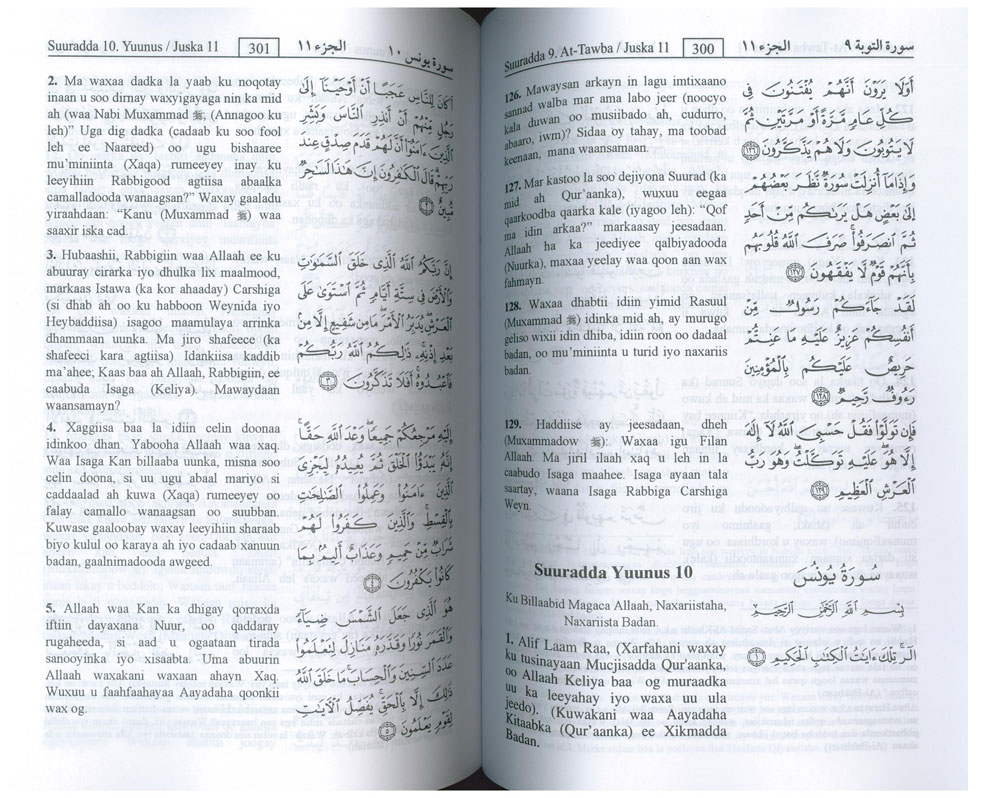 Suuradda 9. At-Tawba / Juska 11
300
الجزء ١١
سورة التوبة ٩
126. Mawaysan arkayn in lagu imtixaano
sannad walba mar ama labo jeer (noocyo
kala duwan oo musiibado ah, cudurro,
abaaro, iwm)? Sidaa oy tahay, ma toobad
keenaan, mana waansamaan.
أَوَلَا يَرَوْنَ أَنَّهُمْ يُفْتَنُونَ فِي
كُلِّ عَامٍ مَّرَّةً أَوْ مَرَّتَيْنِ ثُمَّ
لَا يَتُوبُونَ وَلَا هُمْ يَذَّكَّرُونَ ١٢٦
127. Mar kastoo la soo dejiyona Suurad (ka
mid ah Qur'aanka), wuxuu eegaa
qaarkoodba qaarka kale (iyagoo leh): "Qof
ma idin arkaa?" markaasay jeesadaan.
Allaah ha ka jeediyee qalbiyadooda
(Nuurka), maxaa yeelay waa qoon aan wax
fahmayn.
وَإِذَا مَا أُنزِلَتْ سُورَةٌ نَّظَرَ بَعْضُهُمْ
إِلَىٰ بَعْضٍ هَلْ يَرَىٰكُم مِّنْ أَحَدٍ
ثُمَّ ٱنصَرَفُوا۟ صَرَفَ ٱللَّهُ قُلُوبَهُم
بِأَنَّهُمْ قَوْمٌ لَّا يَفْقَهُونَ ١٢٧
128. Waxaa dhabtii idiin yimid Rasuul
(Muxammad ﷺ) idinka mid ah, ay murugo
geliso wixii idin dhiba, idiin roon oo dadaal
badan, oo mu'miniinta u turid iyo naxariis
badan.
لَقَدْ جَآءَكُمْ رَسُولٌ مِّنْ
أَنفُسِكُمْ عَزِيزٌ عَلَيْهِ مَا عَنِتُّمْ
حَرِيصٌ عَلَيْكُم بِٱلْمُؤْمِنِينَ
رَءُوفٌ رَّحِيمٌ ١٢٨
129. Haddiise ay jeesadaan, dheh
(Muxammadow ﷺ): Waxaa igu Filan
Allaah. Ma jiril ilaah xaq u leh in la
caabudo Isaga maahee. Isaga ayaan tala
saartay, waana Isaga Rabbiga Carshiga
Weyn.
فَإِن تَوَلَّوْا۟ فَقُلْ حَسْبِىَ ٱللَّهُ لَآ إِلَٰهَ
إِلَّا هُوَ عَلَيْهِ تَوَكَّلْتُ وَهُوَ رَبُّ
ٱلْعَرْشِ ٱلْعَظِيمِ ١٢٩
Suuradda Yuunus 10
سُورَةُ يُونُسَ
Ku Billaabid Magaca Allaah, Naxariistaha,
Naxariista Badan.
بِسْمِ ٱللَّهِ ٱلرَّحْمَٰنِ ٱلرَّحِيمِ
1. Alif Laam Raa, (Xarfahani waxay
ku tusinayaan Mucjisadda Qur'aanka,
oo Allaah Keliya baa og muraadka
uu ka leeyahay iyo waxa uu ula
jeedo). (Kuwakani waa Aayadaha
Kitaabka (Qur'aanka) ee Xikmadda
Badan.
الٓر تِلْكَ ءَايَٰتُ ٱلْكِتَٰبِ ٱلْحَكِيمِ ١
Suuradda 10. Yuunus / Juska 11
301
الجزء ١١
سورة يونس ١٠
2. Ma waxaa dadka la yaab ku noqotay
inaan u soo dirnay waxyigayaga nin ka mid
ah (waa Nabi Muxammad ﷺ, (Annagoo ku
leh)" Uga dig dadka (cadaab ku soo fool
leh ee Naareed) oo ugu bishaaree
mu'miniinta (Xaqa) rumeeyey inay ku
leeyihiin Rabbigood agtiisa abaalka
camalladooda wanaagsan?" Waxay gaaladu
yiraahdaan: "Kanu (Muxammad ﷺ) waa
saaxir iska cad.
أَكَانَ لِلنَّاسِ عَجَبًا أَنْ أَوْحَيْنَآ إِلَىٰ
رَجُلٍ مِّنْهُمْ أَنْ أَنذِرِ ٱلنَّاسَ وَبَشِّرِ
ٱلَّذِينَ ءَامَنُوٓا۟ أَنَّ لَهُمْ قَدَمَ صِدْقٍ عِندَ
رَبِّهِمْ قَالَ ٱلْكَٰفِرُونَ إِنَّ هَٰذَا لَسَٰحِرٌ
مُّبِينٌ ٢
3. Hubaashii, Rabbigiin waa Allaah ee ku
abuuray cirarka iyo dhulka lix maalmood,
markaas Istawa (ka kor ahaaday) Carshiga
(si dhab ah oo ku habboon Weynida iyo
Heybaddiisa) isagoo maamulaya arrinka
dhammaan uunka. Ma jiro shafeece (ka
shafeeci kara agtiisa) Idankiisa kaddib
ma'ahee; Kaas baa ah Allaah, Rabbigiin, ee
caabuda Isaga (Keliya). Mawaydaan
waansamayn?
إِنَّ رَبَّكُمُ ٱللَّهُ ٱلَّذِى خَلَقَ ٱلسَّمَٰوَٰتِ
وَٱلْأَرْضَ فِى سِتَّةِ أَيَّامٍ ثُمَّ ٱسْتَوَىٰ عَلَى
ٱلْعَرْشِ يُدَبِّرُ ٱلْأَمْرَ مَا مِن شَفِيعٍ إِلَّا مِنۢ
بَعْدِ إِذْنِهِۦ ذَٰلِكُمُ ٱللَّهُ رَبُّكُمْ
فَٱعْبُدُوهُ أَفَلَا تَذَكَّرُونَ ٣
4. Xaggiisa baa la idiin celin doonaa
idinkoo dhan. Yabooha Allaah waa xaq.
Waa Isaga Kan billaaba uunka, misna soo
celin doona, si uu ugu abaal mariyo si
caddaalad ah kuwa (Xaqa) rumeeyey oo
falay camallo wanaagsan oo suubban.
Kuwase gaaloobay waxay leeyihiin sharaab
biyo kulul oo karaya ah iyo cadaab xanuun
badan, gaalnimadooda awgeed.
إِلَيْهِ مَرْجِعُكُمْ جَمِيعًا وَعْدَ ٱللَّهِ حَقًّا
إِنَّهُۥ يَبْدَؤُا۟ ٱلْخَلْقَ ثُمَّ يُعِيدُهُۥ لِيَجْزِىَ
ٱلَّذِينَ ءَامَنُوا۟ وَعَمِلُوا۟ ٱلصَّٰلِحَٰتِ
بِٱلْقِسْطِ وَٱلَّذِينَ كَفَرُوا۟ لَهُمْ
شَرَابٌ مِّنْ حَمِيمٍ وَعَذَابٌ أَلِيمٌۢ بِمَا
كَانُوا۟ يَكْفُرُونَ ٤
5. Allaah waa Kan ka dhigay qorraxda
iftiin dayaxana Nuur, oo qaddaray
rugaheeda, si aad u ogaataan tirada
sanooyinka iyo xisaabta. Uma abuurin
Allaah waxakani waxaan ahayn Xaq.
Wuxuu u faahfaahayaa Aayadaha qoonkii
wax og.
هُوَ ٱلَّذِى جَعَلَ ٱلشَّمْسَ ضِيَآءً
وَٱلْقَمَرَ نُورًا وَقَدَّرَهُۥ مَنَازِلَ لِتَعْلَمُوا۟
عَدَدَ ٱلسِّنِينَ وَٱلْحِسَابَ مَا خَلَقَ ٱللَّهُ
ذَٰلِكَ إِلَّا بِٱلْحَقِّ يُفَصِّلُ ٱلْءَايَٰتِ
لِقَوْمٍ يَعْلَمُونَ ٥